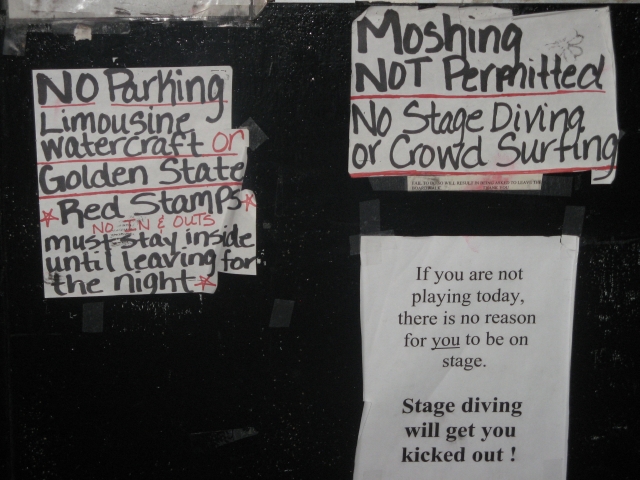 NO Parking
Limousine
watercraft or
Golden State
Red Stamps
NO IN & OUTS
must stay inside
until leaving for
the night
Moshing
NOT Permitted
No Stage Diving
or Crowd Surfing
If you are not
playing today,
there is no reason
for you to be on
stage.
Stage diving
will get you
kicked out !